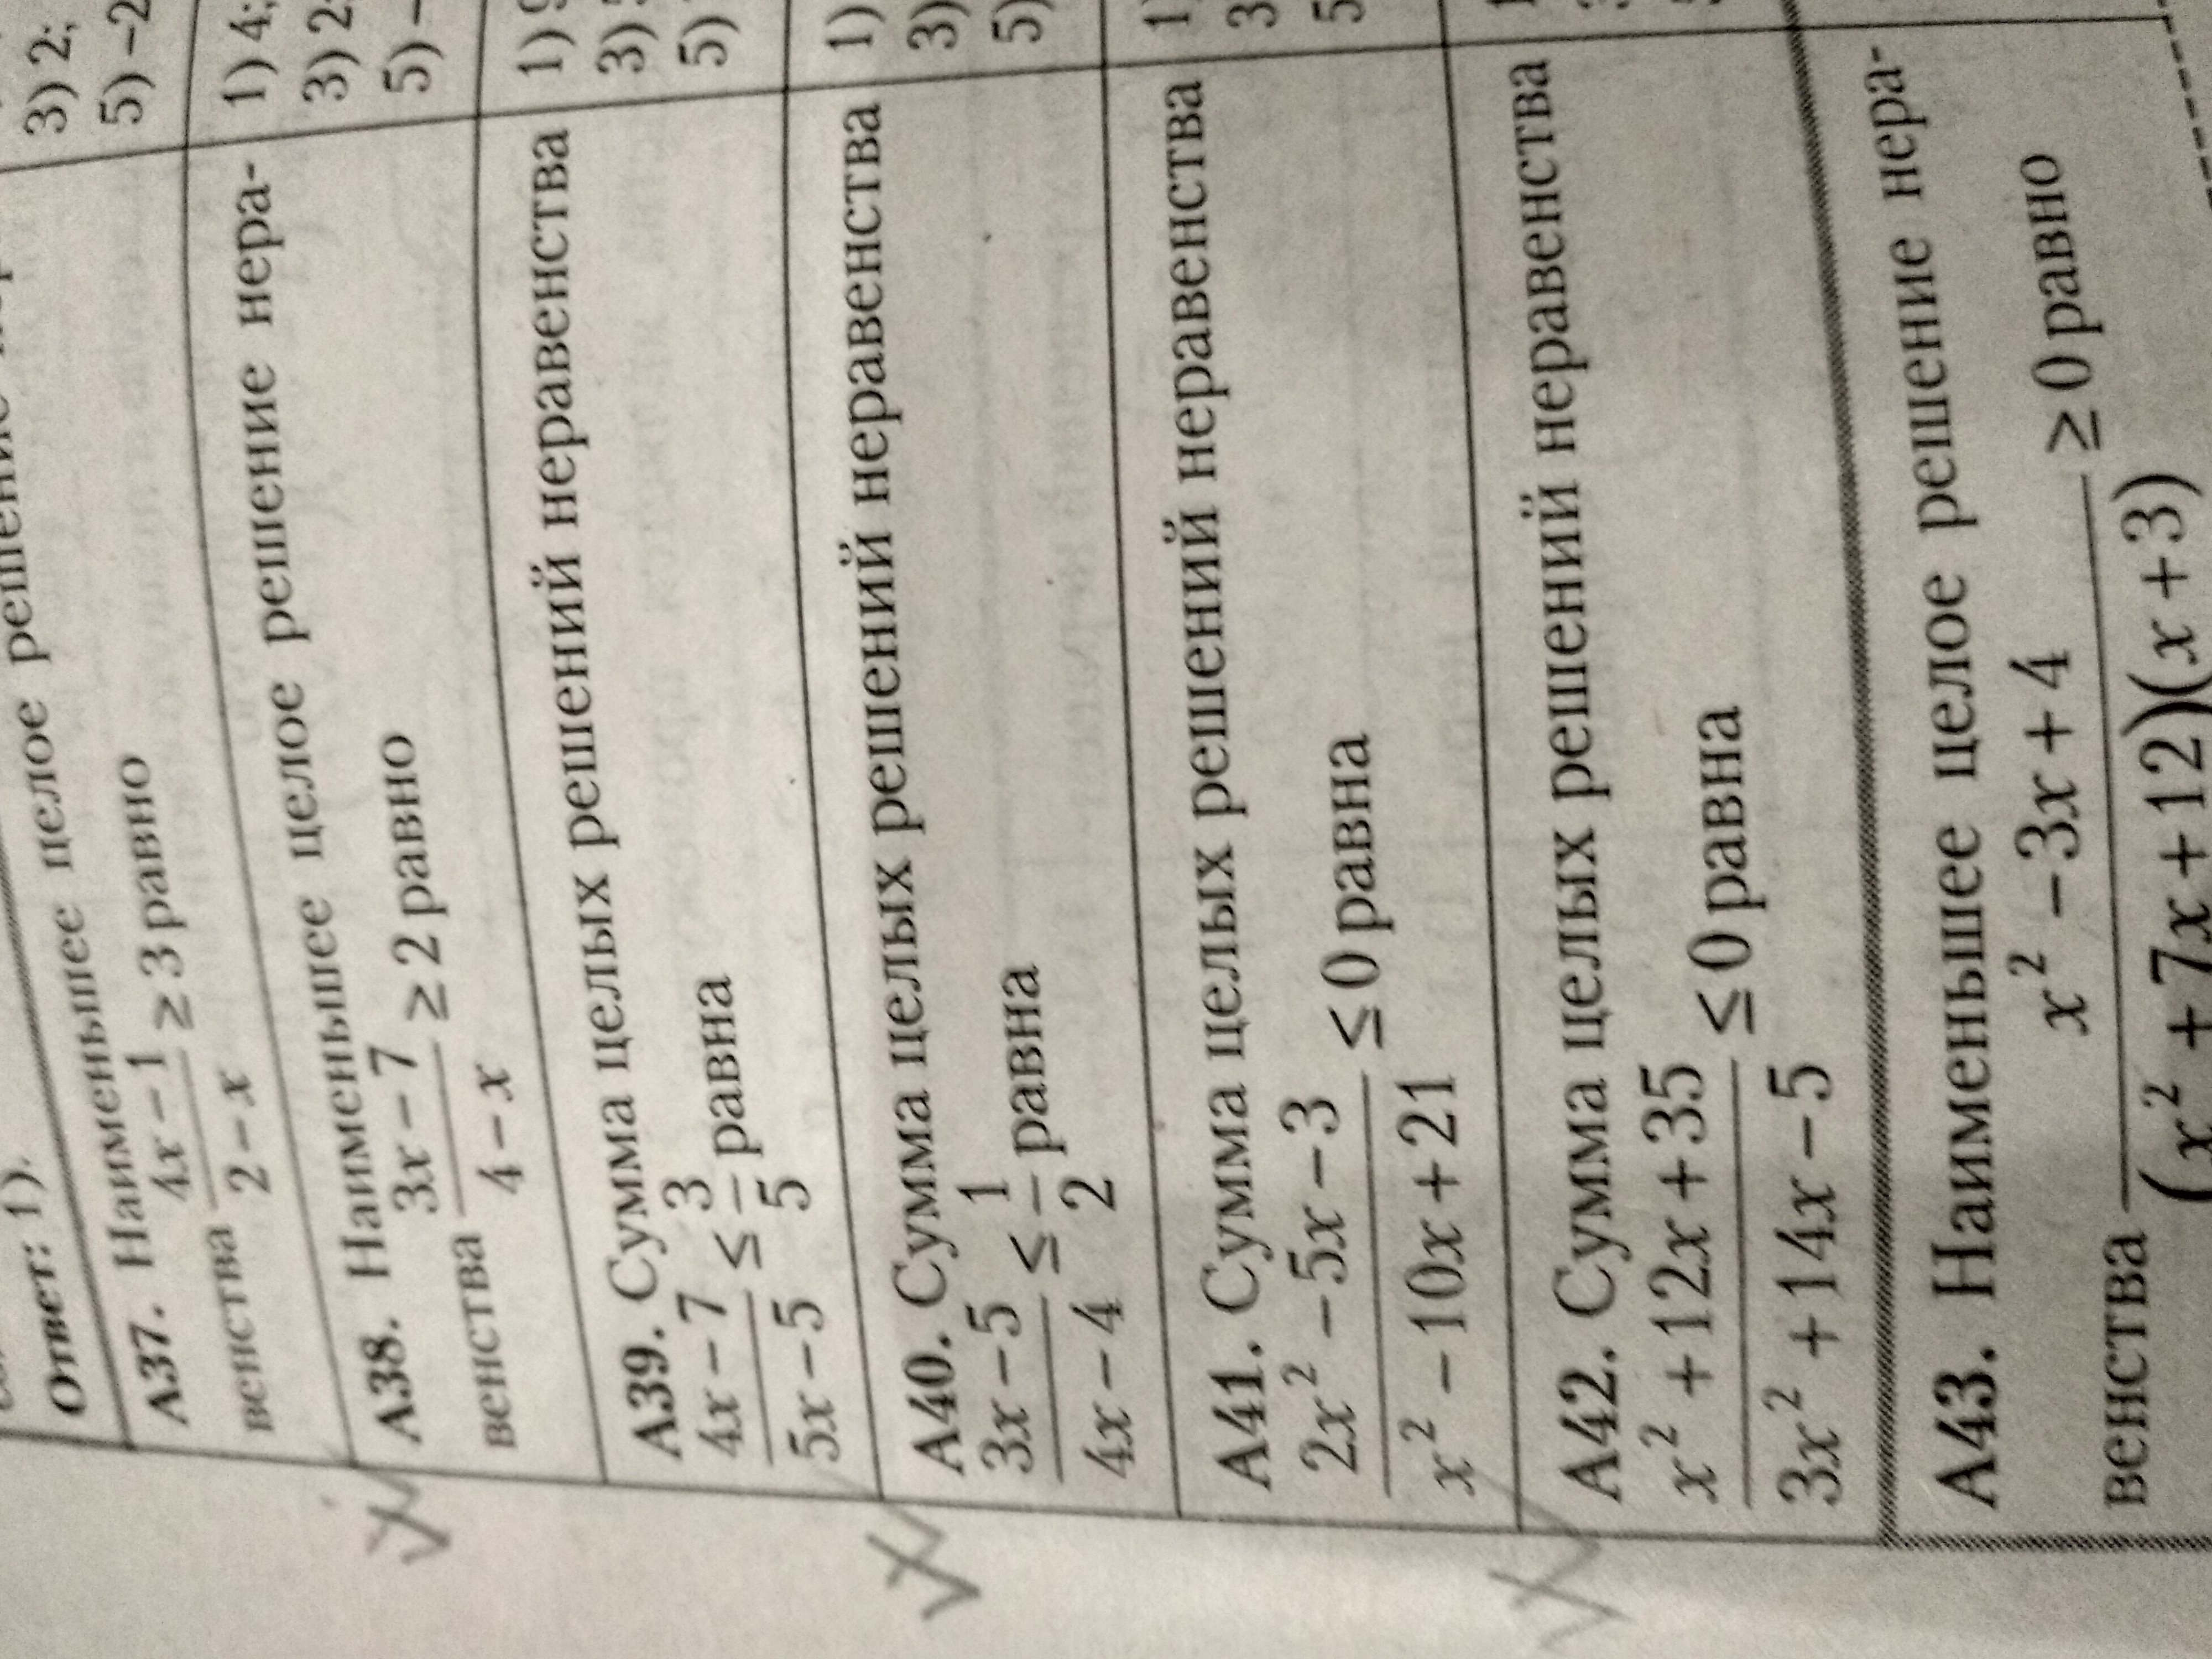 Ответ: 1).
3) 2;
5) –2
А37. Наименьшее целое решение нера-
венства (4x – 1)/(2 – x) ≥ 3 равно
1) 4;
3) 2;
5) –
А38. Наименьшее целое решение нера-
венства (3x – 7)/(4 – x) ≥ 2 равно
1) 9
3)
5)
А39. Сумма целых решений неравенства
(4x – 7)/(5x – 5) ≤ 3/5 равна
1)
3)
5)
А40. Сумма целых решений неравенства
(3x – 5)/(4x – 4) ≤ 1/2 равна
1)
3
5
А41. Сумма целых решений неравенства
(2x² – 5x – 3)/(x² – 10x + 21) ≤ 0 равна
А42. Сумма целых решений неравенства
(x² + 12x + 35)/(3x² + 14x – 5) ≤ 0 равна
А43. Наименьшее целое решение нера-
венства (x² – 3x + 4)/((x² + 7x + 12)(x + 3)) ≥ 0 равно